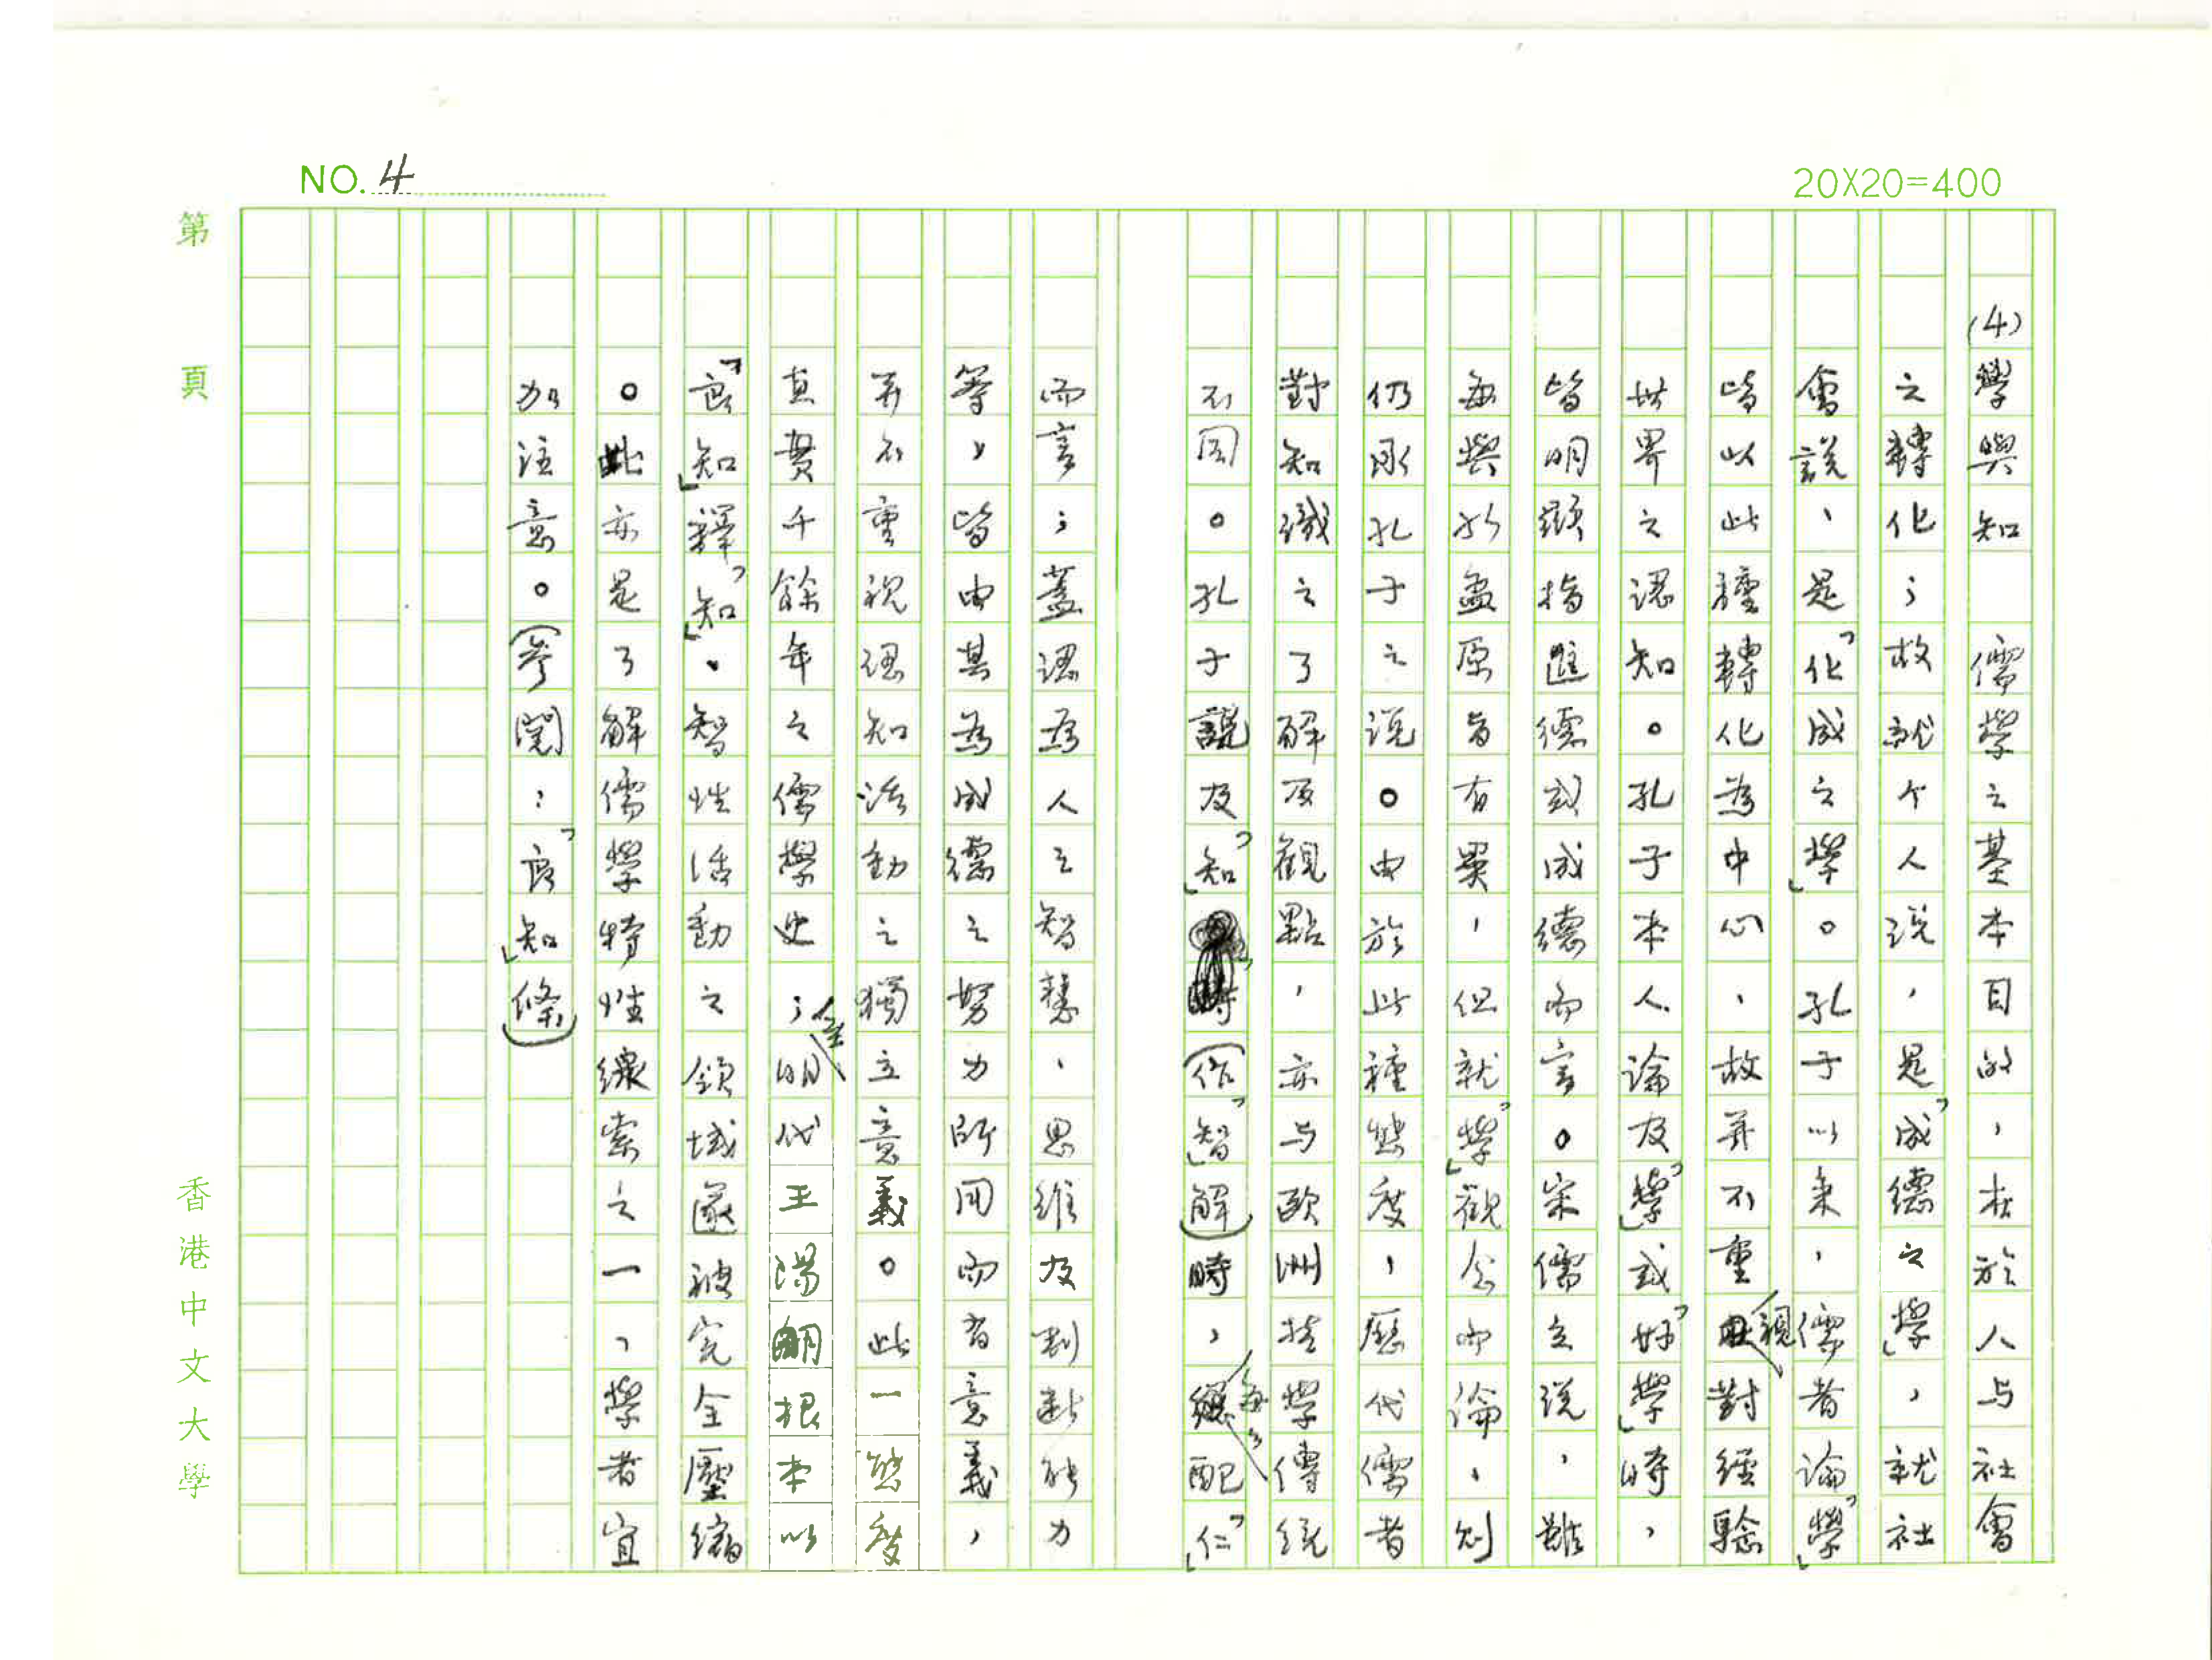 NO. 4
20X20=400
(4)學與知　儒學之基本目的,在於人与社會
之轉化;故就个人說,是「成德」之「學」,就社
會說,是「化成」之「學」。孔子以來,儒者論「學」
皆以此種轉化為中心,故并不重視對經驗
世界之認知。孔子本人論及「學」或「好學」時,
皆明顯指進德或成德而言。宋儒立說,雖
每與孔孟原旨有異,但就「學」觀念而論,則
仍承孔子之說。由於此種態度,歷代儒者
對知識之了解及觀點,亦与歐洲哲學傳統
不同。孔子說及「知」(作「智」解)時,每配「仁」
而言;蓋認為人之智慧、思維及判斷能力
等,皆由其為成德之努力所用而有意義,
并不重視認知活動之獨立意義。此一態度
直貫千餘年之儒學史;至明代王陽明根本以
「良知」釋「知」,智性活動之領域遂被完全壓縮
。此亦是了解儒學特性線索之一,學者宜
加注意。(參閱:「良知」條)
第　頁
香港中文大學